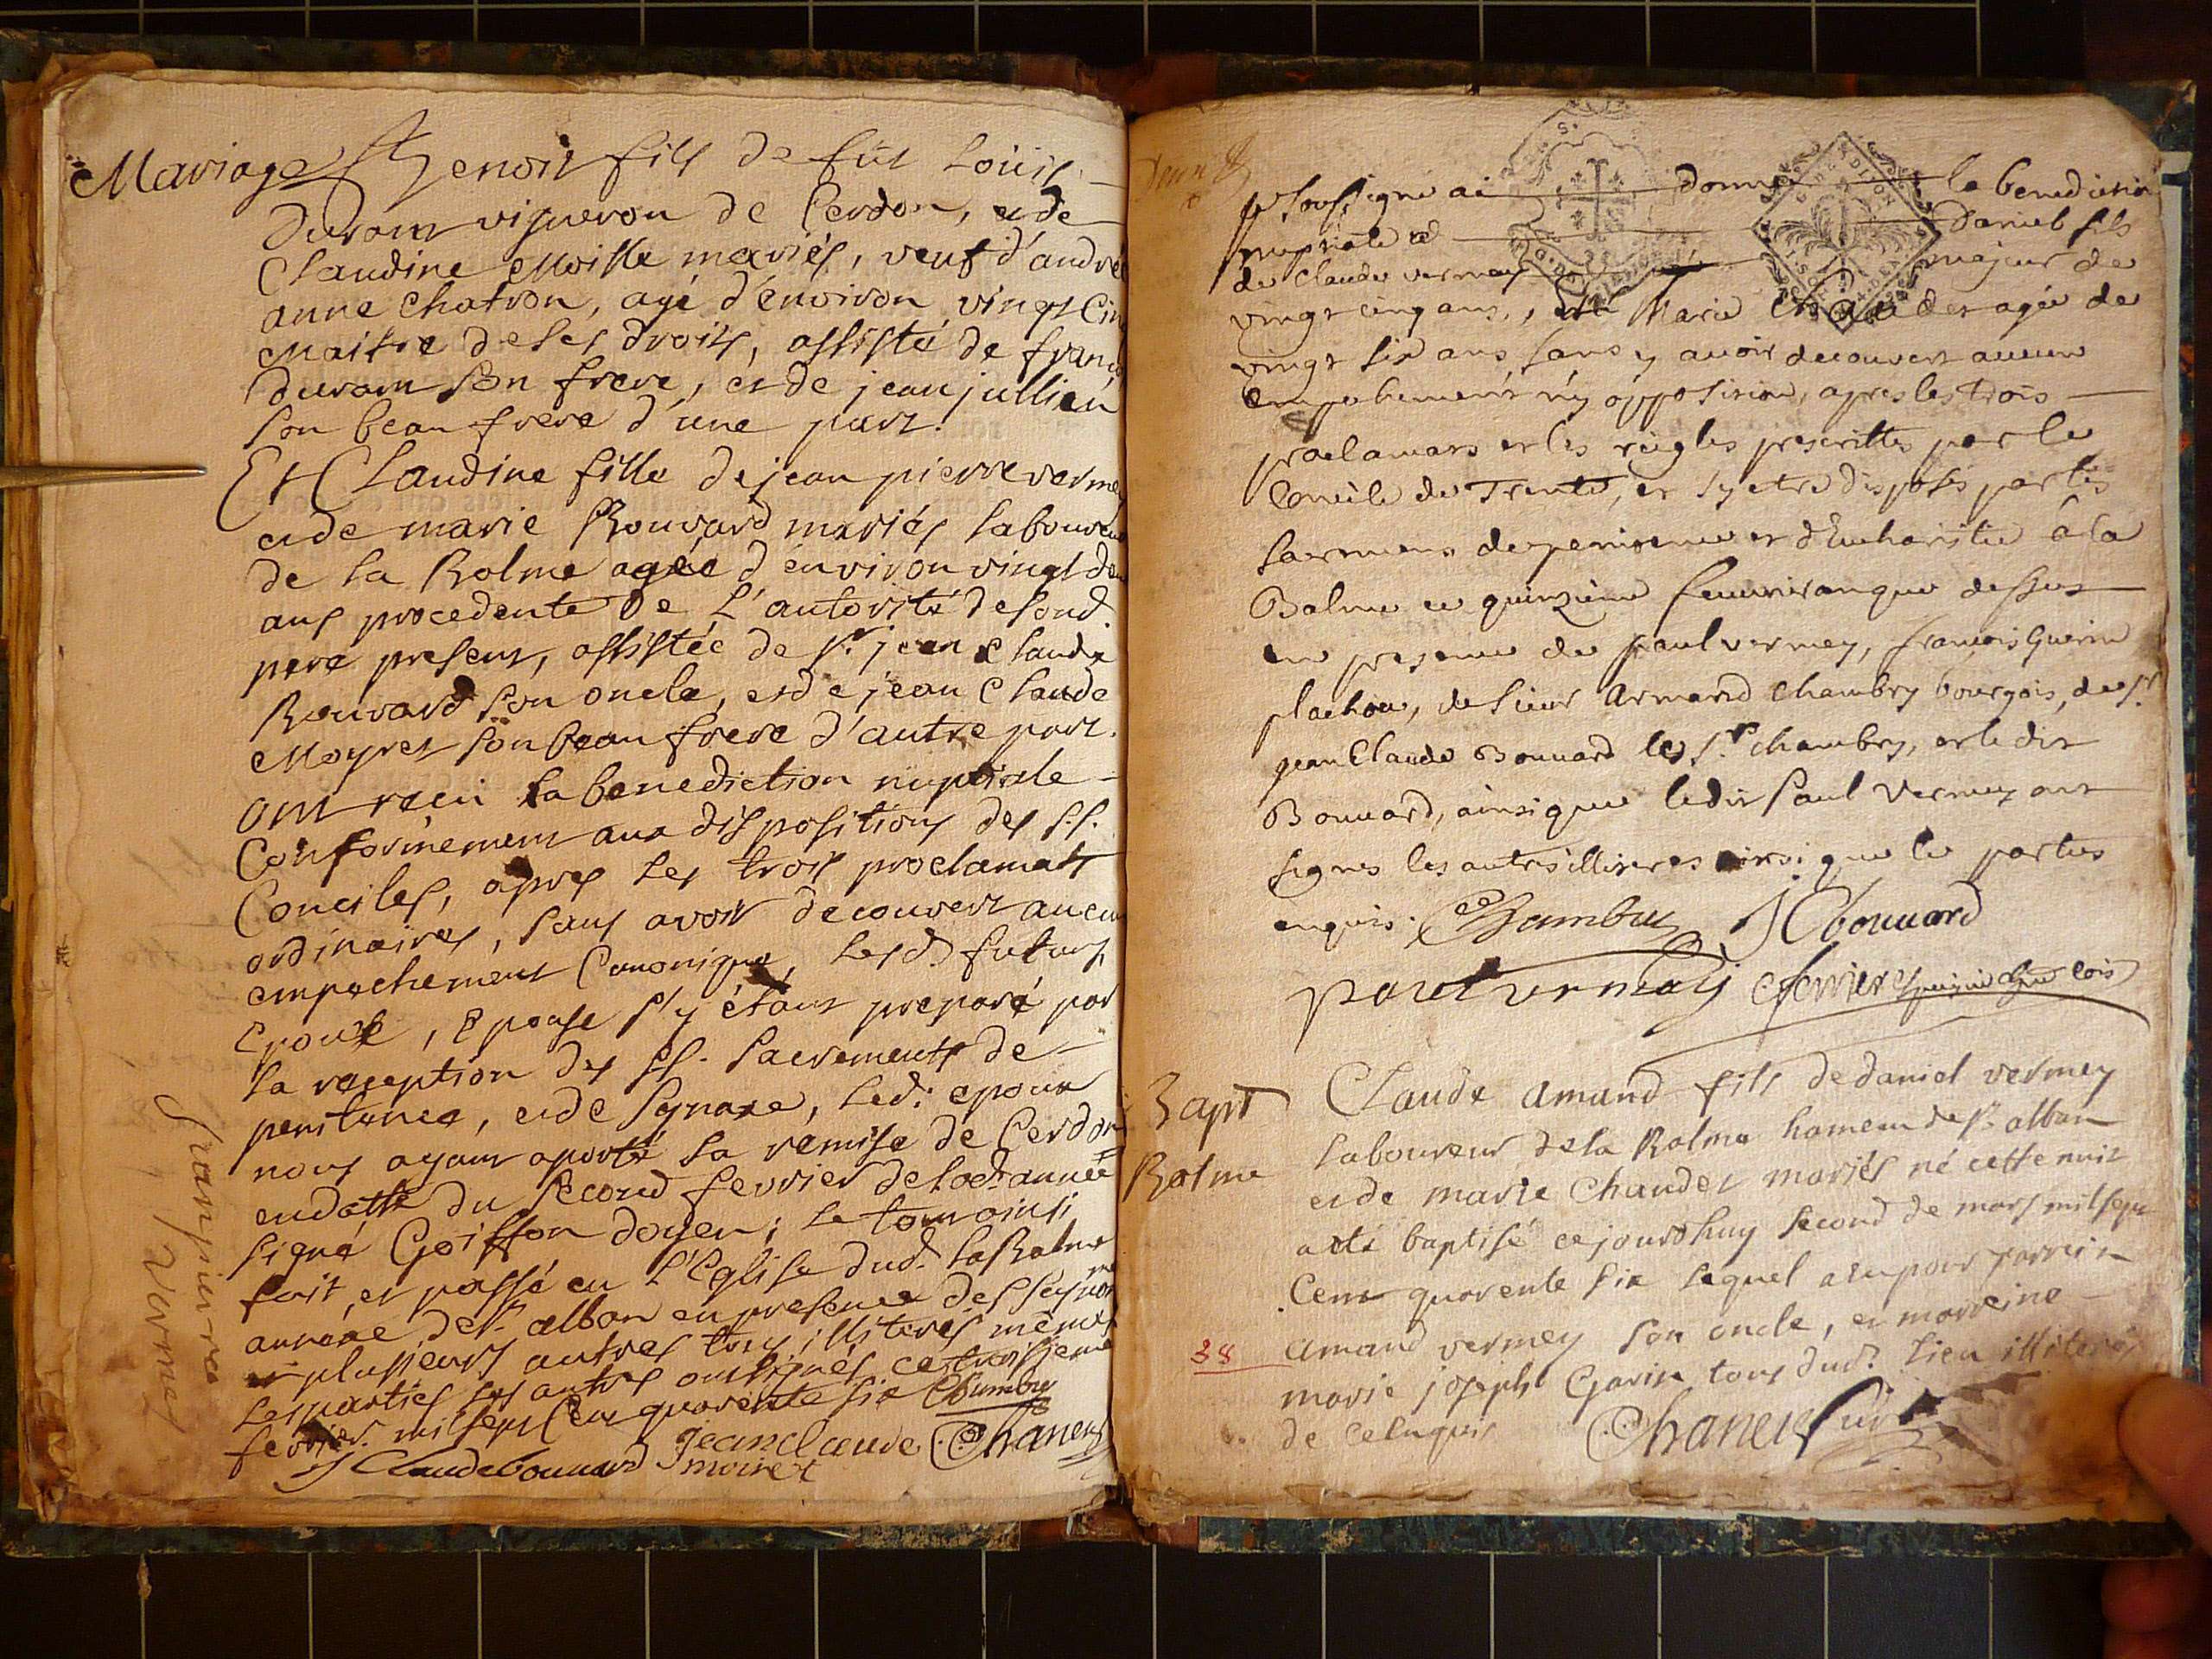 Mariage Benoit fils de fut Loüis
Durant vigneron de Cerdon, et de
Claudine Moille mariés, veuf d'andrée
anne Chatron, agé d'énviron vingt Cin
Maitre de ses droits, assisté de franç
Durant son frere, et de jean jullien
son beau frere d'une part.
Et Claudine fille de jean pierre verme
et de marie Bouvard mariés laboure
de la Balme agée d'énviron vingt d
ans procedente de L'autorité de sond.
pere present, assistée de sr. jean Claude
Bouvard son oncle, et de jean Claude
Moyret son beau frere d'autre part.
ont reçu la benediction nuptiale
Conformement aux dispositions des SS.
Conciles, apres les trois proclamats
ordinaires, sans avoir decouvert aucun
empechement Canonique, lesd. futurs
epoux, Epouse s'y étant preparé par
la reception des SS. sacrements de
penitence, et de Synaxe, led. epoux
nous ayant aporté la remise de Cerdon
en datte du second fevrier de lad. année
signé Goiffon doyen; le tout ainsi
fait, et passé en L'Eglise dud. la Balme
annexe de St. alban en presence des
et plusieurs autres tous illiterés mêmes
les parties les autres ont signés ce troisieme
fevrier mil sept Cent quarente six Chambry
J Claude bouvard jean claude moiret Chanen
jean pierre
Vermei
je soussigné ai donné la benediction
nuptiale a Daniel fils
de Claude vermey majeur de
vingt cinq ans, et à Marie Chaudet agée de
vingt six ans sans y avoir decouvert aucun
empechement n'y opposition, apres les trois
proclamats et les regles prescrittes par le
Concile de Trente, et s'y etre disposés par les
sacremens de penitence et d'Eucharistie à la
Balme ce quinzieme feuvrier an que dessus
en presence de paul vermey, francois Guerin
plachou, de sieur Armand Chambry bourgois, de sr.
jean Claude Bouvard les sr. chambry, et le dit
Bouvard, ainsi que ledit Paul Vermey ont
signes les autres illiteres ainsi que les parties
enquis. Chambry J C bouuard
paul vermay ferrier
Bapt
Balme
Claude Amand fils de daniel vermey
laboureur de la Balme hameau de St. alban
et de marie Chaudet mariés né cette nuit
a eté baptisé ce jourdhuy second de mars mil sept
Cent quarente six lequel a eu pour parrein
amand vermey son oncle, et marreine
marie joseph Garin tous dud. Lieu illiterés
de ce enquis Chanel
38